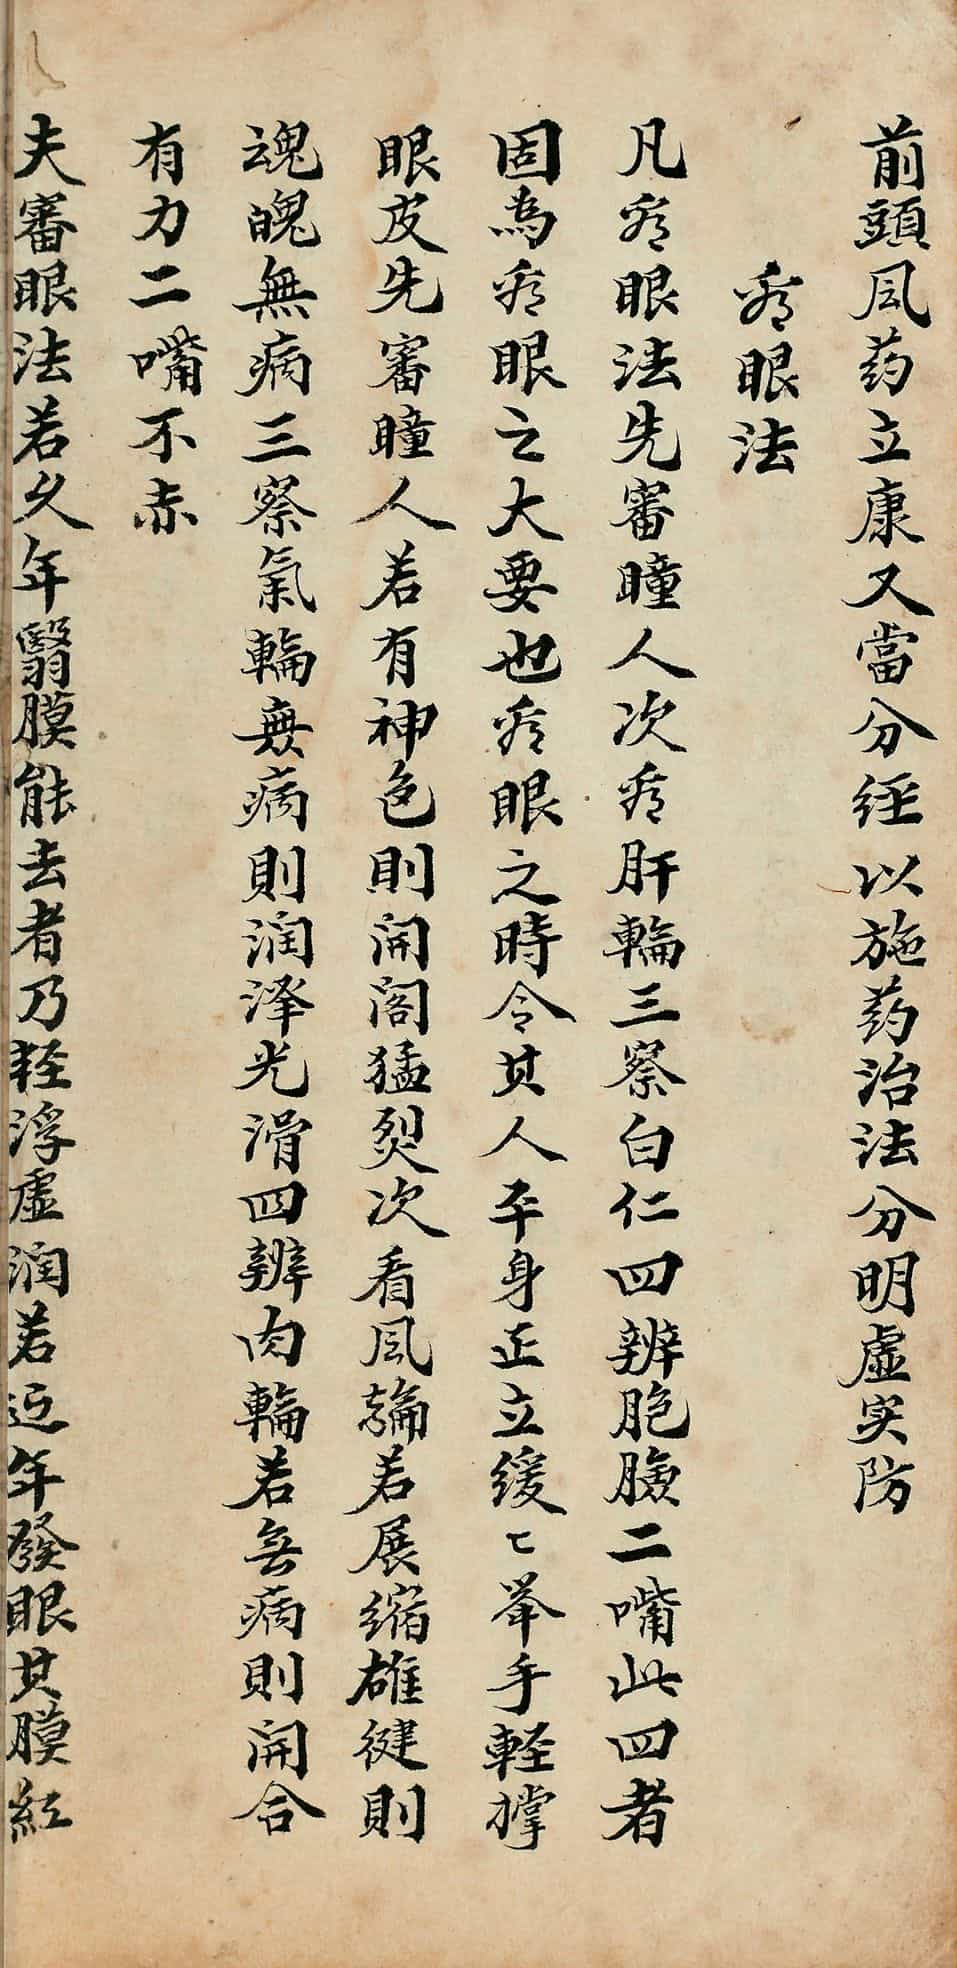 前頭风药立康又當分经以施药治法分明虚实防
看眼法
凡看眼法先審瞳人次看肝輪三察白仁四辨胞臉二嘴此四者
固為看眼之大要也看眼之時令其人平身正立缓〻举手軽撑
眼皮先審瞳人若有神色則開阁猛烈次看风輪若展缩雄健則
魂魄無病三察氣輪無病則润泽光滑四辨肉輪若無病則開合
有力二嘴不赤
夫審眼法若久年翳膜能去者乃轻浮虚润若近年發眼其膜紅